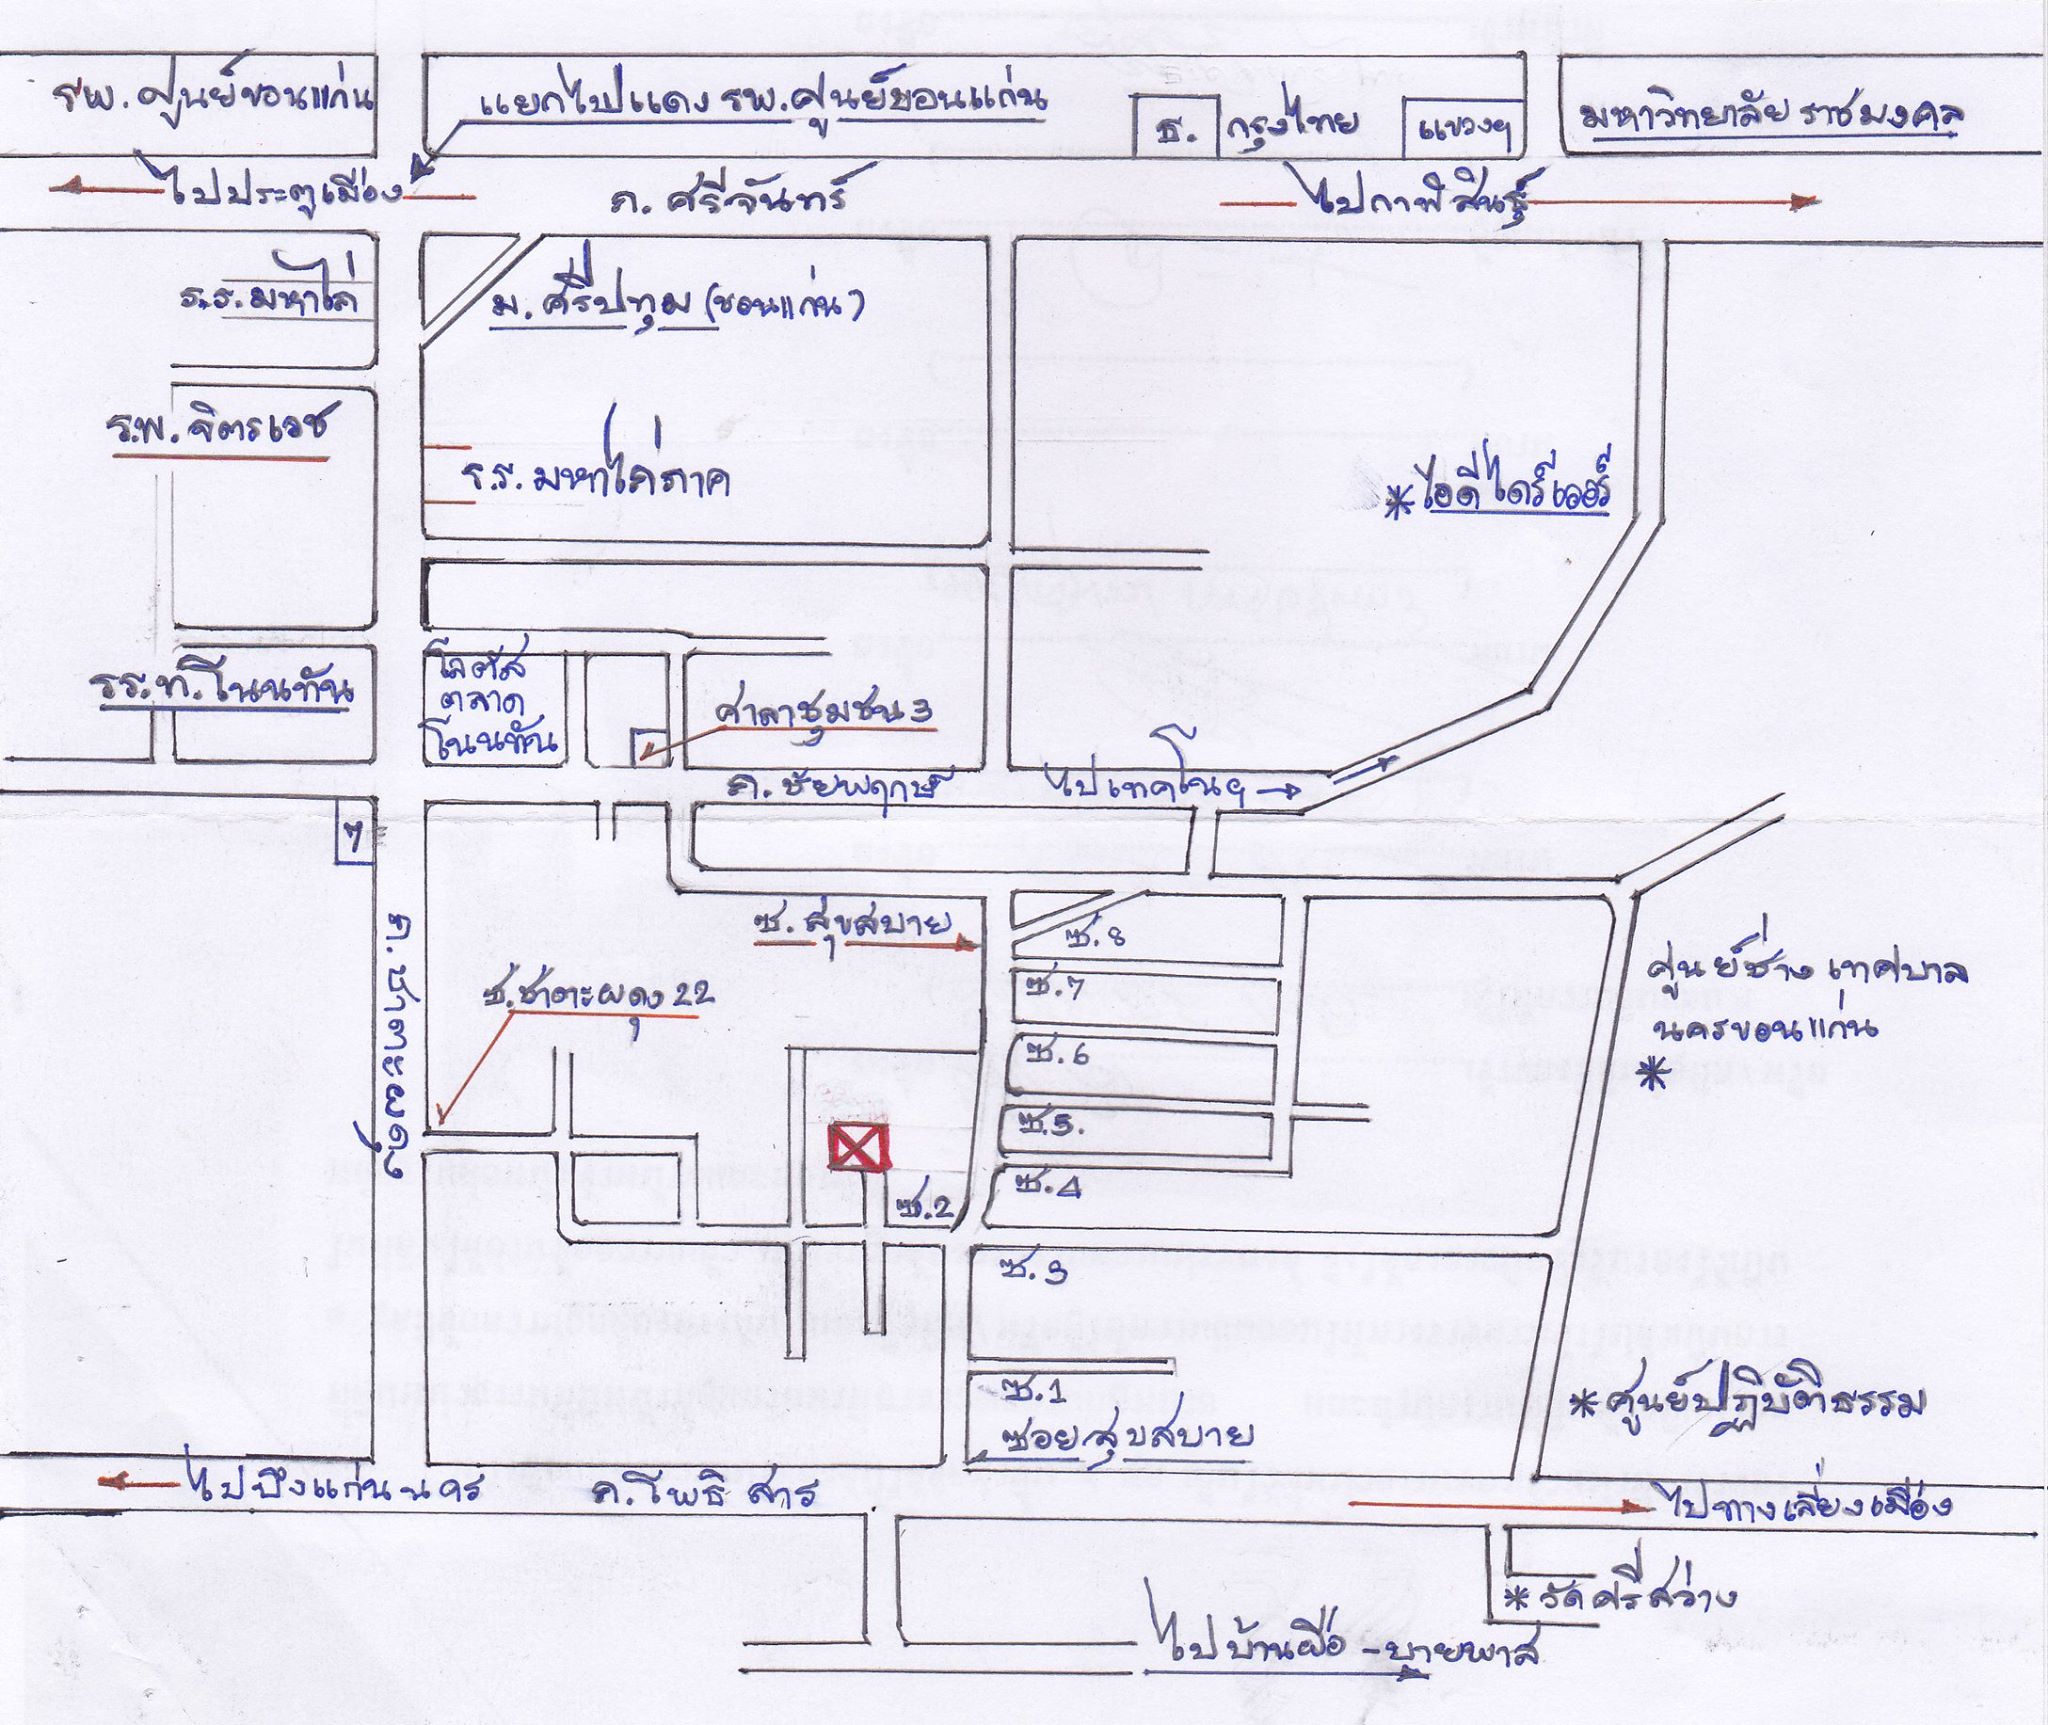 รพ.ศูนย์ขอนแก่น
แยกไปแดง รพ.ศูนย์ขอนแก่น
ธ. กรุงไทย
แขวงฯ
มหาวิทยาลัยราชมงคล
ไปประตูเมือง
ถ. ศรีจันทร์
ไปกาฬสินธุ์
ร.ร.มหาไถ่
ม.ศรีปทุม (ขอนแก่น)
ร.พ.จิตรเวช
ร.ร.มหาไถ่ภาค
*ไอดีไดร์เวอร์
รร.ท.โนนทัน
โลตัส
ตลาด
โนนทัน
ศาลาชุมชน 3
ถ.ชัยพฤกษ์
ไปเทคโนฯ
7
ซ.สุขสบาย
ซ.8
ซ.7
ซ.6
ซ.5.
ซ.4
ศูนย์ช่าง เทศบาล
นครขอนแก่น
*
ซ.ชาตะผดุง 22
ถ.ชาตะผดุง
ซ.2
ซ.3
ซ.1
ซอยสุขสบาย
*ศูนย์ปฏิบัติธรรม
ไปบึงแก่นนคร
ถ.โพธิสาร
ไปทางเลี่ยงเมือง
*วัดศรีสว่าง
ไปบ้านผือ - บายพาส